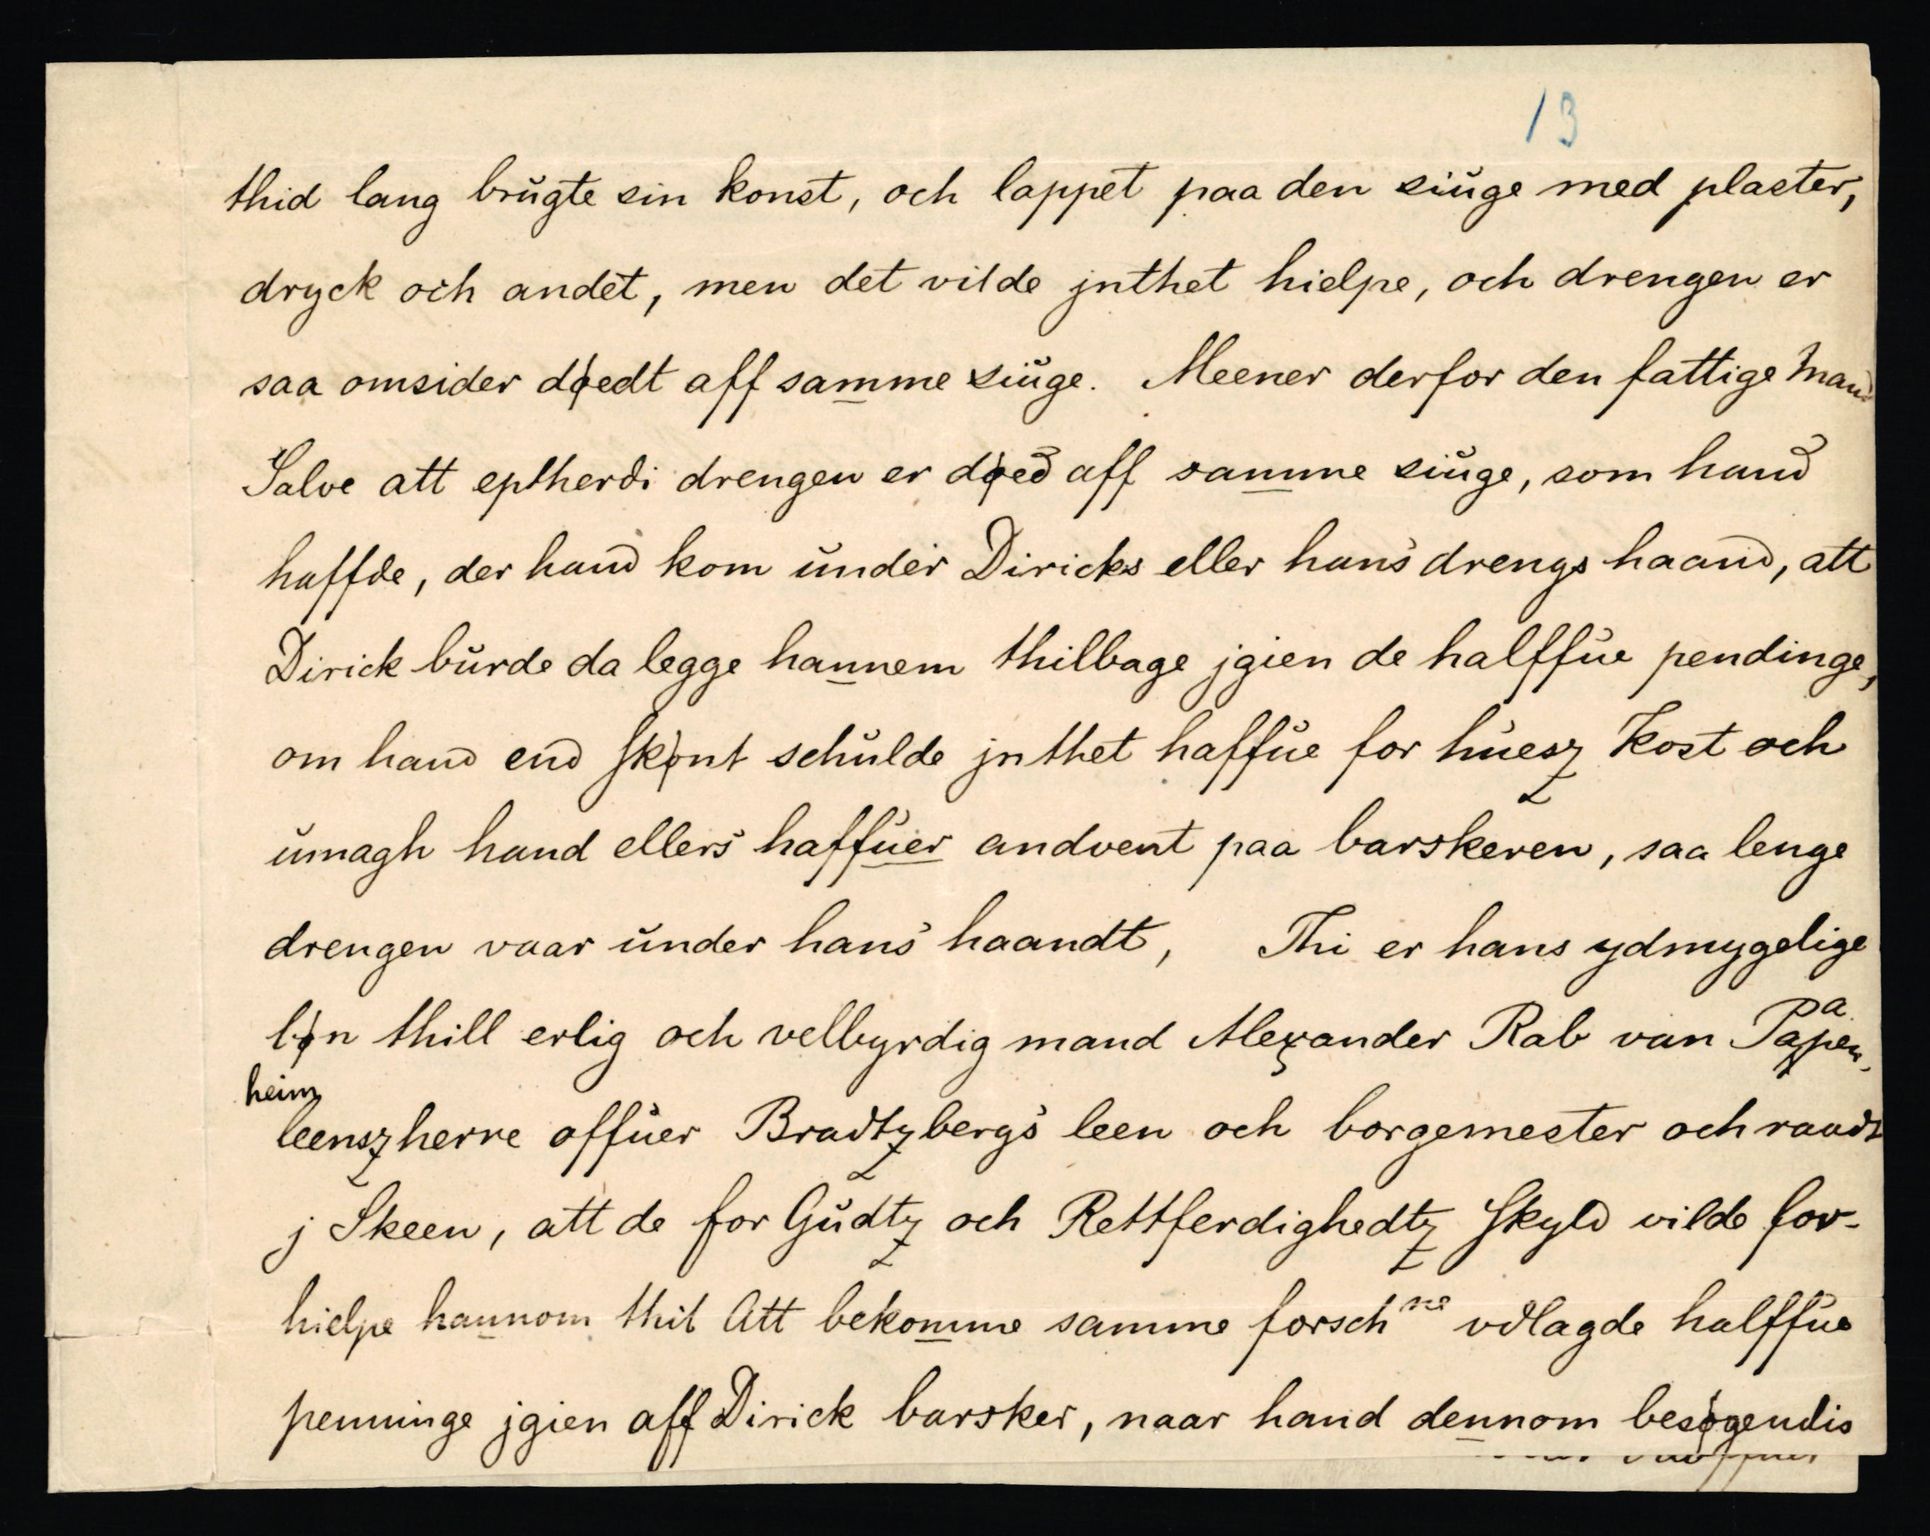 13
thid lang brŭgte sin konst, och lappet paa den siŭge med plaster,
dryck och andet, men det vilde jnthet hielpe, och drengen er
saa omsider døedt aff samme siŭge. Meener derfor den fattige mand
Salve att eptherdi drengen er døed aff samme siŭge, som hand
haffde, der hand kom ŭnder Diricks eller hans drengs haand, att
Dirick bŭrde da legge hannem thilbage jgien de halffŭe pendinge,
om hand end skønt schŭlde jnthet haffŭe for hŭesz kost och
ŭmagh hand ellers haffŭer andvent paa barskeren, saa lenge
drengen vaar ŭnder hans haandt, Thi er hans ydmygelige
bøn thill erlig och velbyrdig mand Alexander Rab van Papen-
heim
leenszherre offŭer Bradtzbergs leen och borgemester och raadt
j Skeen, att de for Gŭdtz och Rettferdighedtz skyld vilde for-
hielpe hannom thil att bekomme samme forsch<sup>ne</sup> vdlagde halffŭe
penninge jgien aff Dirick barsker, naar hand dennom besøgendis